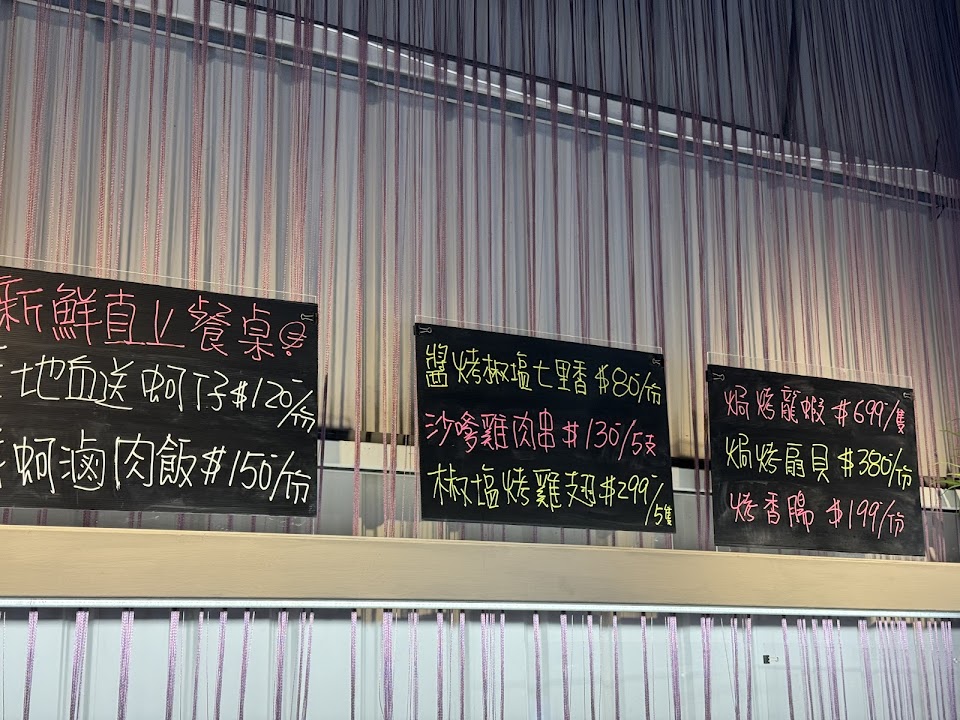 新鮮直ㄩ餐桌
地血送蚵仔$120/份
蚵滷肉飯$150/份
醬烤椒塩七里香$80/份
沙嗲雞肉串$130/5支
椒塩烤雞翅$299/5隻
焗烤龍蝦$699/隻
焗烤扇貝$380/份
烤香腸$199/份